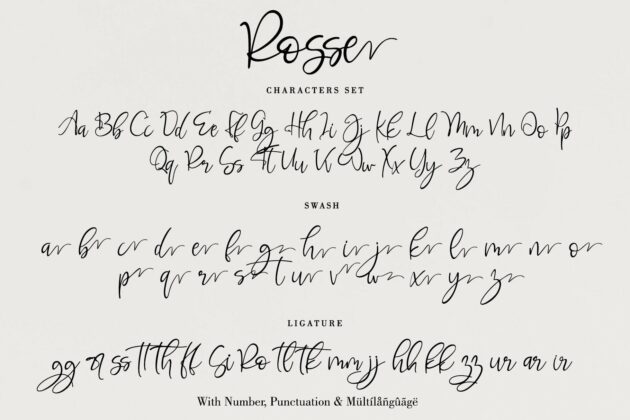 Rosser
CHARACTERS SET
Aa Bb Cc Dd Ee Ff Gg Hh Ii Jj Kk Ll Mm Nn Oo Pp
Qq Rr Ss Tt Uu Vv Ww Xx Yy Zz
SWASH
a b c d e f g h i j k l m n o
p q r s t u v w x y z
LIGATURE
gg ss tt th ff Si Ro tl tk mm jj hh kk zz ur ar ir
With Number, Punctuation & Mültílâñgûãgë